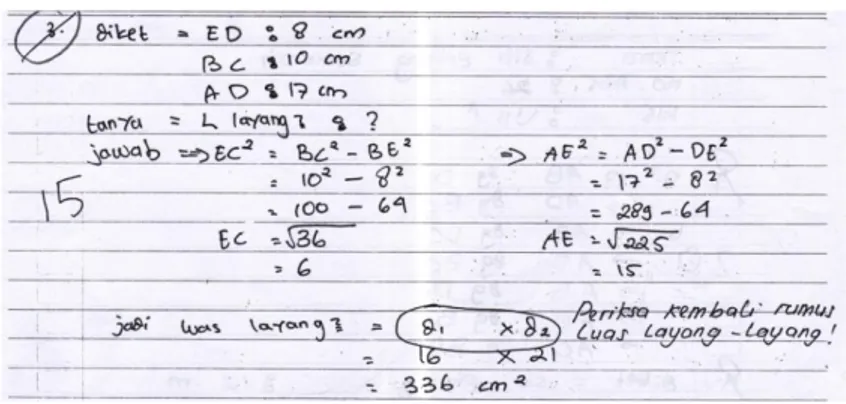 3. diket = ED : 8 cm
BC : 10 cm
AD : 17 cm
tanya = L layang² : ?
jawab => EC² = BC² - BE²
= 10² - 8²
= 100 - 64
EC = √36
= 6
=> AE² = AD² - DE²
= 17² - 8²
= 289 - 64
AE = √225
= 15
15
jadi luas layang² = d₁ x d₂
= 16 x 21
= 336 cm²
Periksa kembali rumus
Luas Layang-Layang!